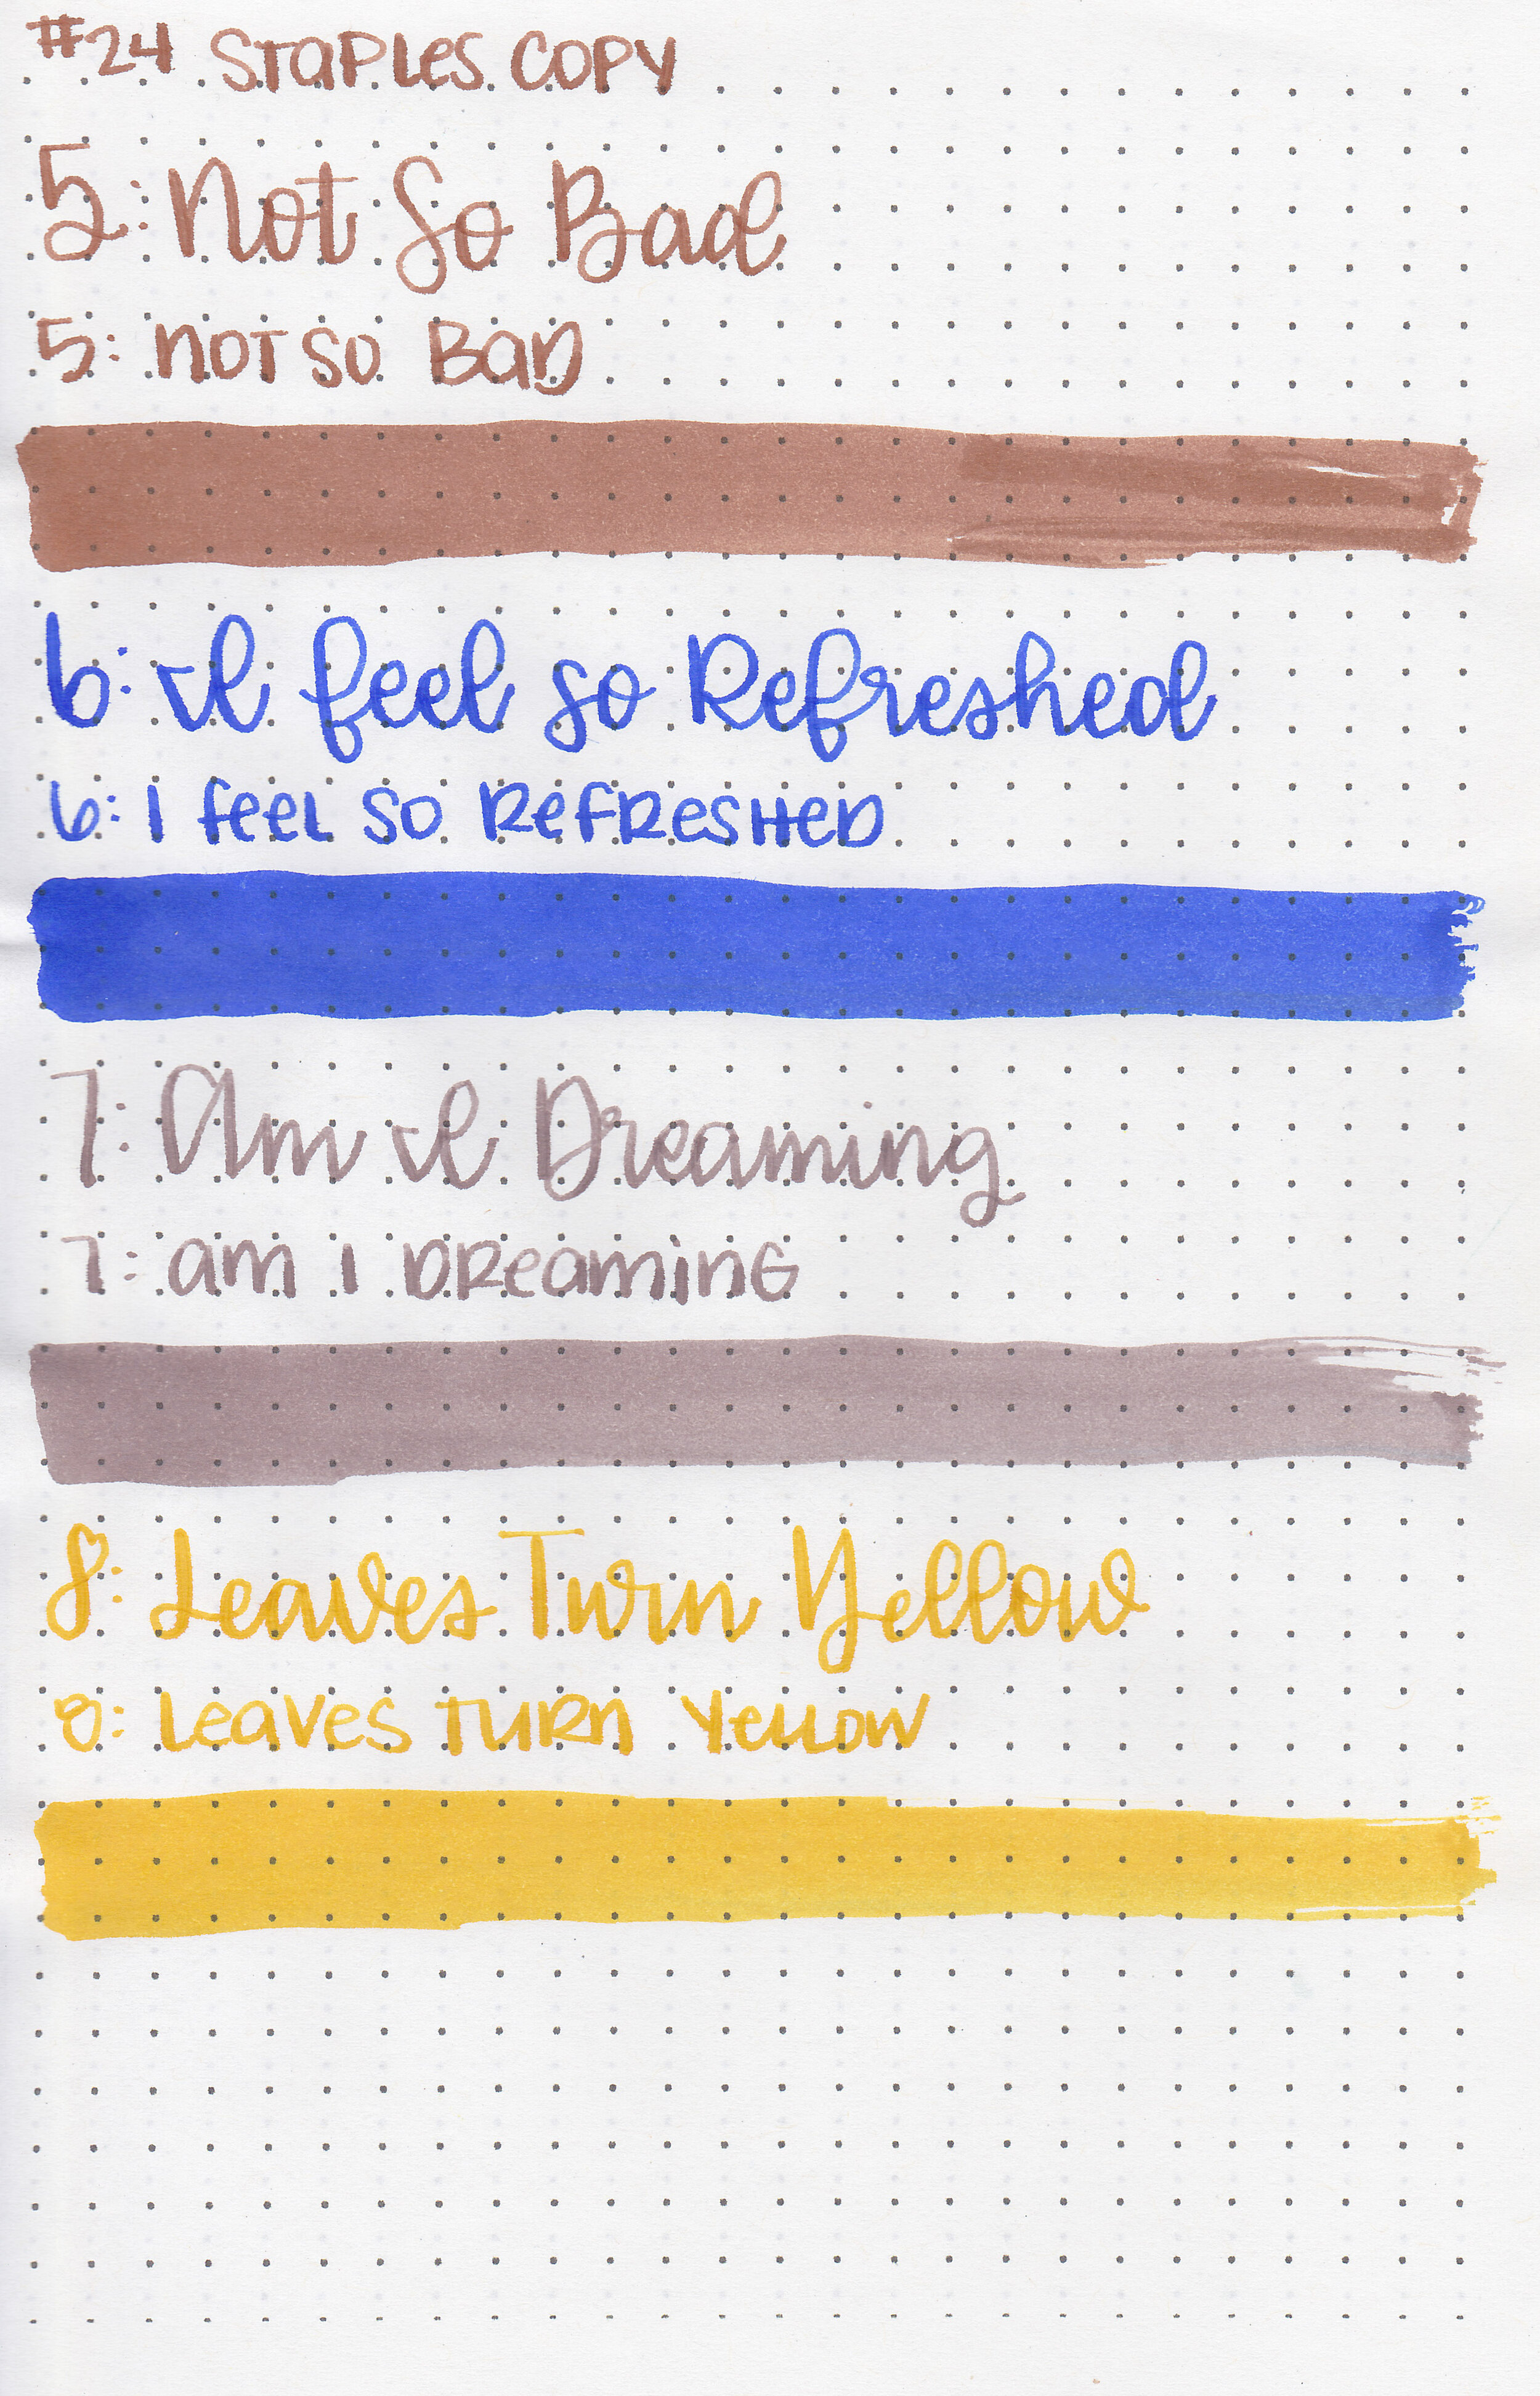 #24 Staples Copy
5: Not So Bad
5: Not So Bad
6: I feel so Refreshed
6: I feel so Refreshed
7: Am I Dreaming
7: am I Dreaming
8: Leaves Turn Yellow
8: Leaves Turn Yellow